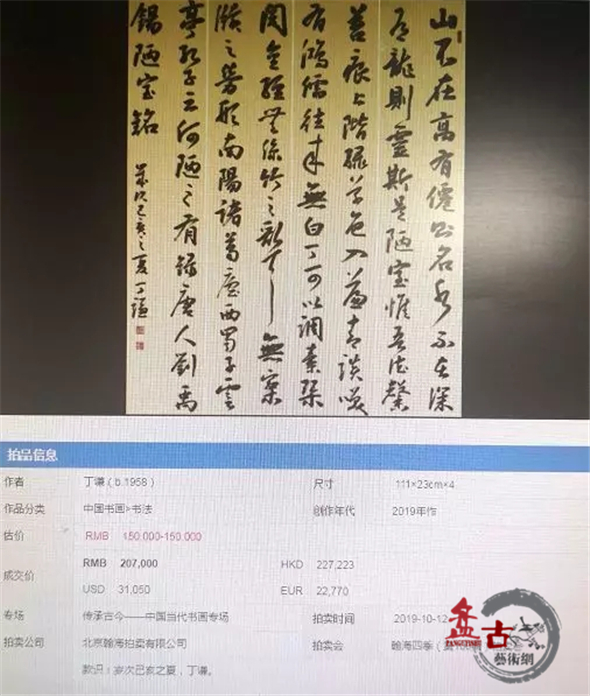 山不在高有僊則名水不在深
有龍則靈斯是陋室惟吾德馨
苔痕上階綠草色入簾青談笑
有鴻儒往来無白丁可以調素琴
閱金經無絲竹之亂耳無案
牘之勞形南陽諸葛廬西蜀子雲
亭孔子云何陋之有錄唐人劉禹
錫陋室銘 歲次己亥之夏丁謙
拍品信息
作者 丁谦（b.1958） 尺寸 111×23cm×4
作品分类 中国书画>书法 创作年代 2019年作
估价 RMB 150,000-150,000
成交价 RMB 207,000 HKD 227,223
USD 31,050 EUR 22,770
专场 传承古今——中国当代书画专场 拍卖时间 2019-10-12
拍卖公司 北京翰海拍卖有限公司 拍卖会 翰海四季
款识：岁次己亥之夏，丁谦。
盘古
PANGUYISHU
藝術網